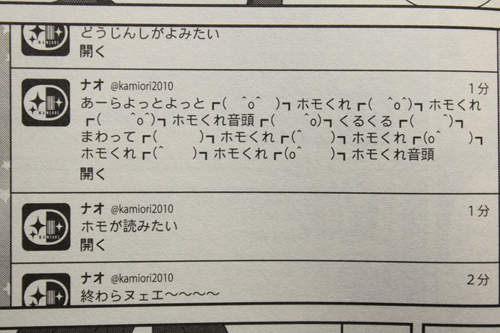 どうじんしがよみたい
開く
ナオ @kamiori2010 1分
あーらよっとよっと┏( ＾o＾ )┓ホモくれ┏( ＾o＾)┓ホモくれ
┏( ＾o＾)┓ホモくれ音頭┏( ＾o)┓くるくる┏( ＾)┓
まわって┏( )┓ホモくれ┏(＾ )┓ホモくれ┏(o＾ )┓
ホモくれ┏(＾ )┓ホモくれ┏(o＾ )┓ホモくれ音頭
開く
ナオ @kamiori2010 1分
ホモが読みたい
開く
ナオ @kamiori2010 2分
終わらヌェエ〜〜〜〜